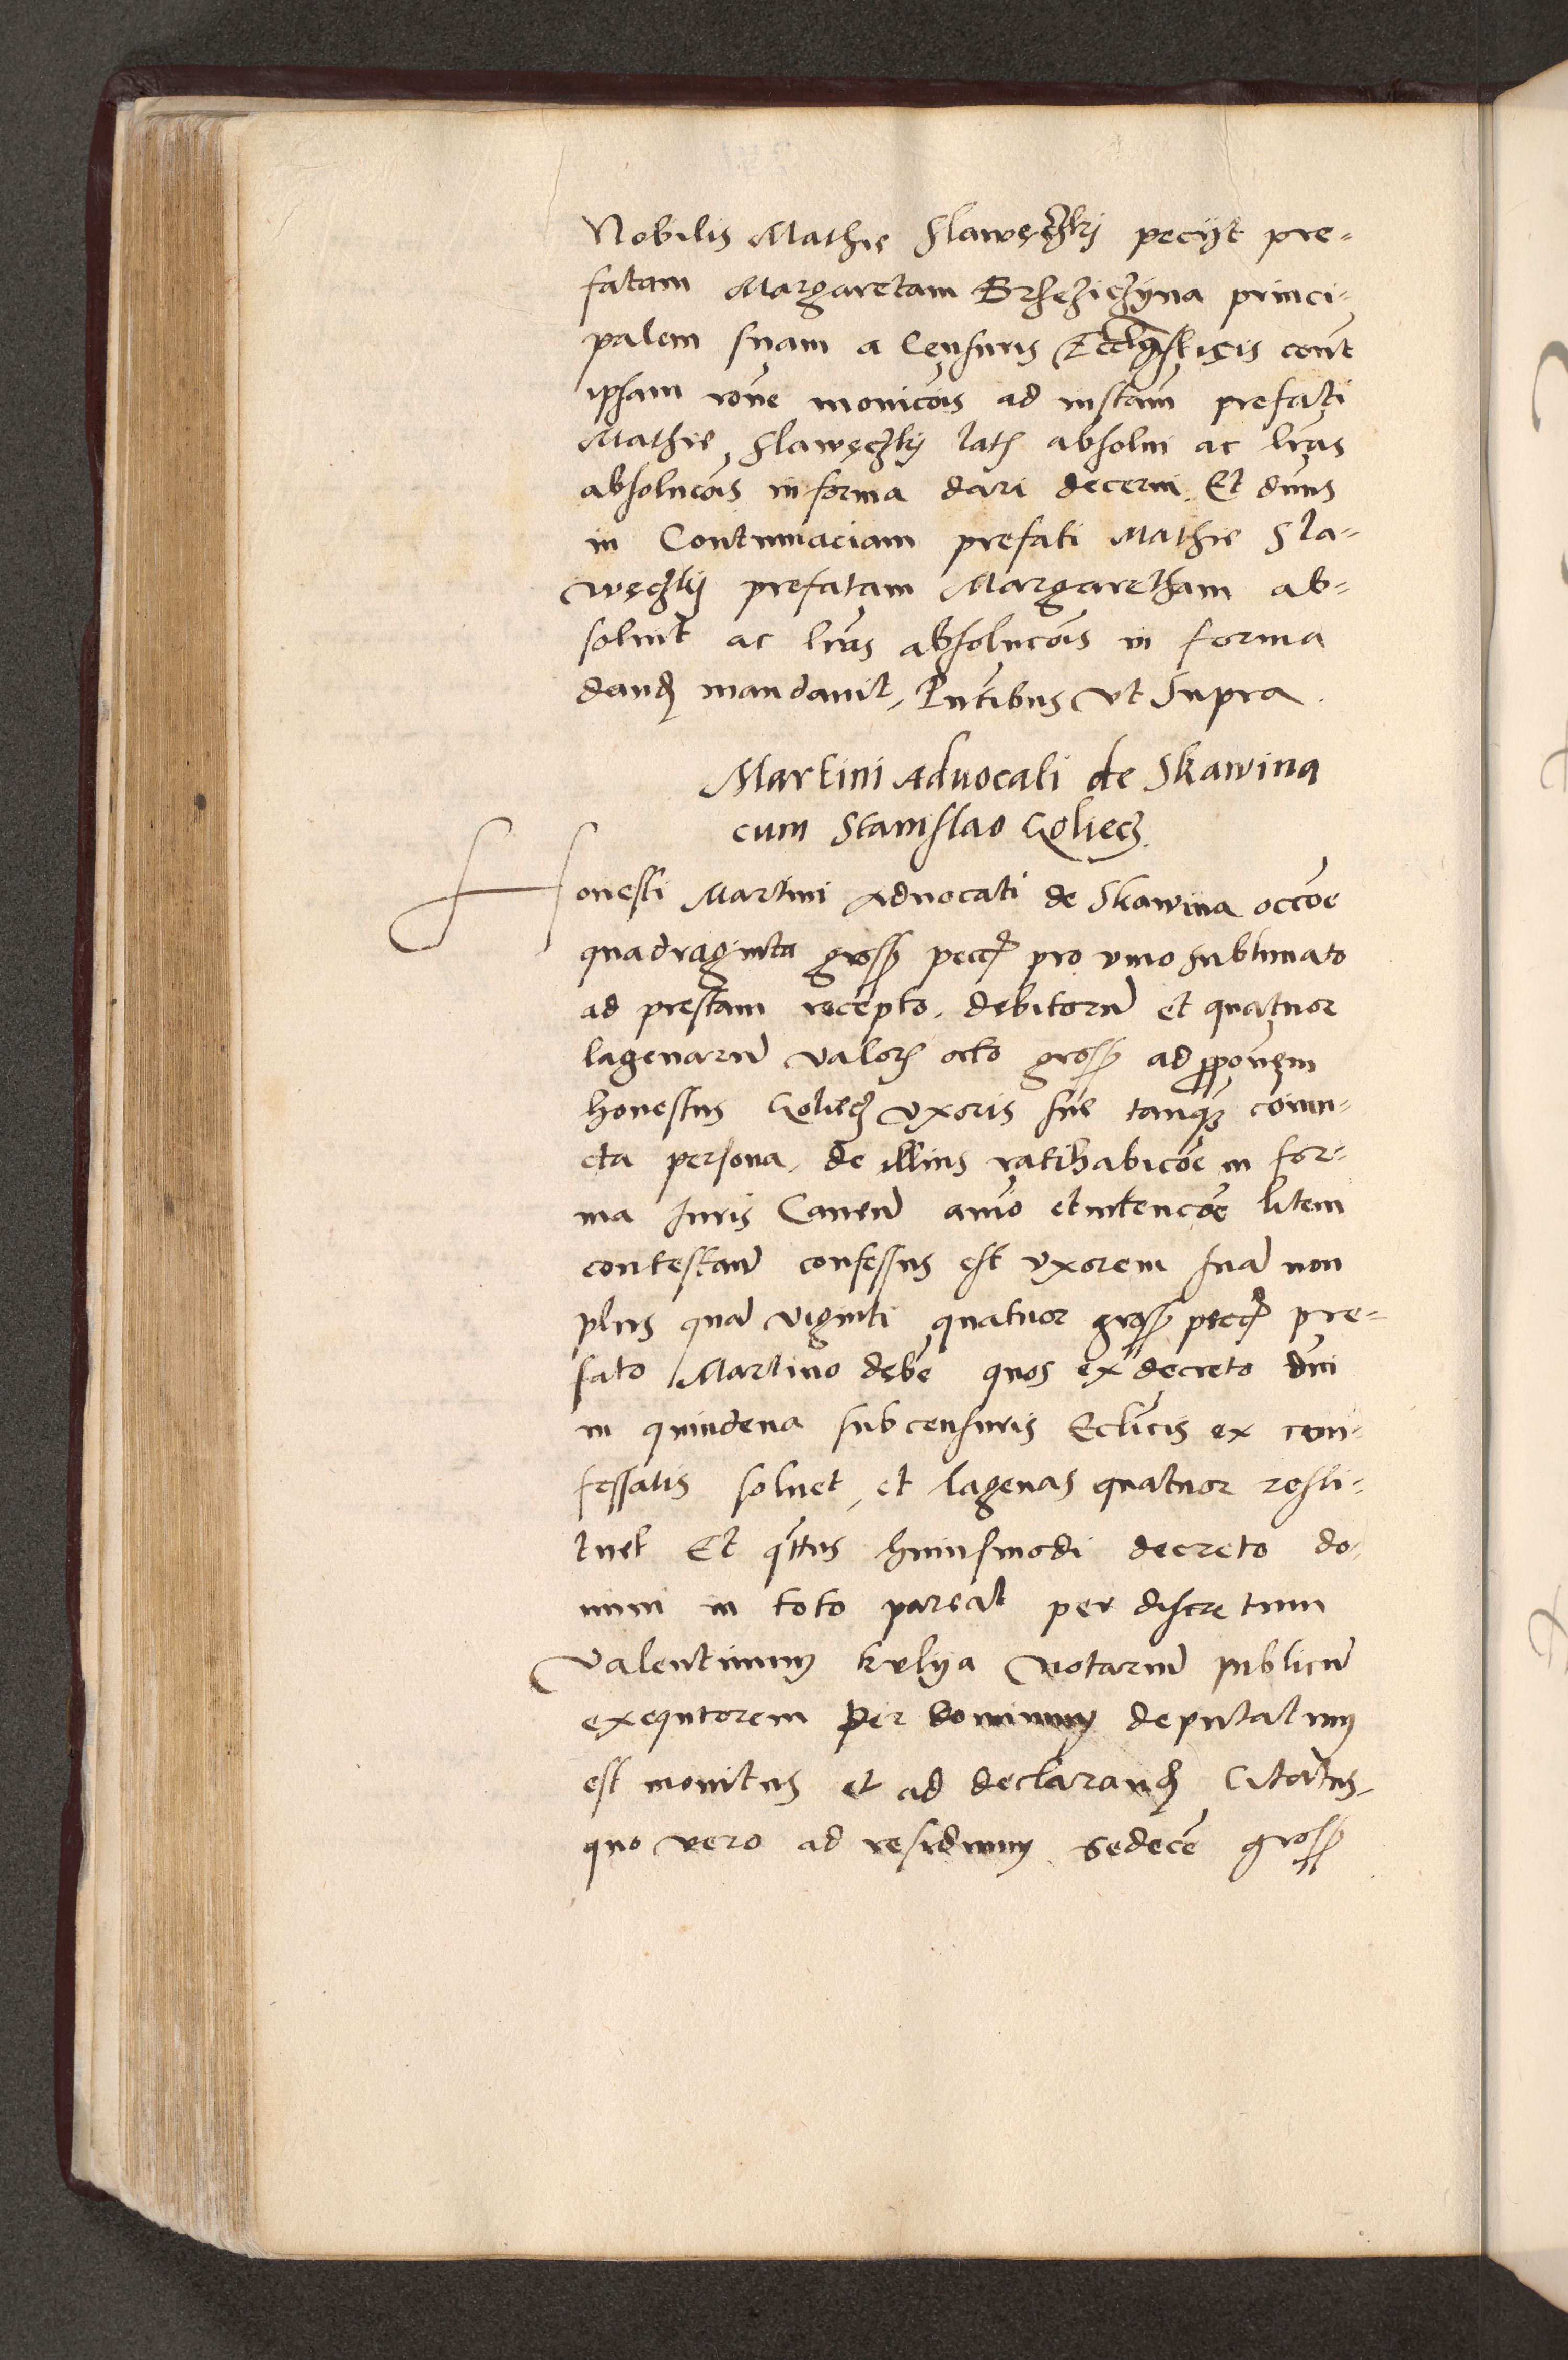 Nobilis Mathie Slawęczkij pecijt pre=
fatam Margaretam Brzezicziyna princi=
palem suam a Censuris Eccłasticis cont
ipsam rone monicois ad instam prefati
Mathie Slawęczkij lat absolui ac lras
absolucois in forma dari decerni. Et dnus
in Contumaciam prefati Mathie Sla=
węczkij prefatam Margaretham ab=
soluit ac lras absolucois in forma
dand mandauit, Pntibus vt Supra.
Martini Aduocati de Skawina
cum Stanislao Goliecz.
Honesti Martini Aduocati de Skawina occoe
quadraginta gross pecc pro vino sublimato
ad prestam recepto. debitoru et quatuor
lagenaru valor octo gross ad proponem
honestus Goliecz vxoris sue tanq coniu=
cta persona. de illius ratihabicoe in for=
ma Iuris Cauen animo et intencoe litem
contestan confessus est vxorem sua non
plus qua viginti quatuor gross pecc pre=
fato Martino debe quos ex decreto dni
in quindena sub censuris Eclicis ex con=
fessatis soluet, et lagenas quatuor resti=
tuet Et qttus huiusmodi decreto do=
mini in toto pareat per discretum
Valentinum kulija Notariu publicu
exequtorem per dominum deputatum
est monitus et ad declarand Citatus,
quo vero ad residuum sedece gross